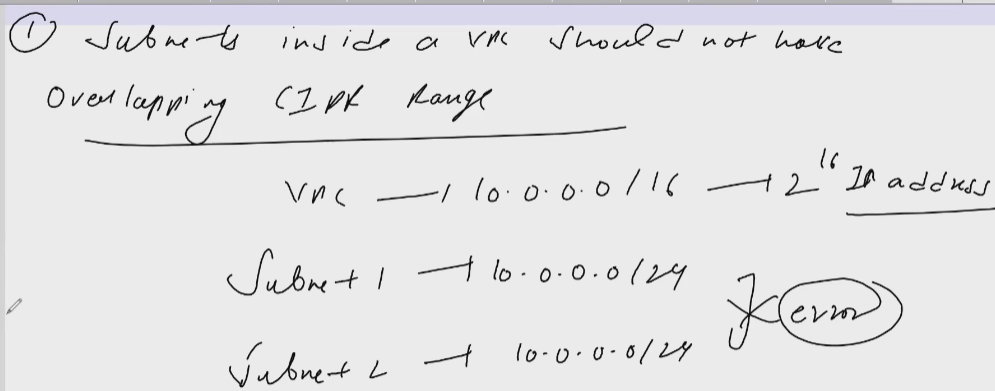 ① Subnets inside a VPC should not have
Overlapping CIDR Range
VPC → 10.0.0.0/16 → 2^16 IP address
Subnet 1 → 10.0.0.0/24
error
Subnet 2 → 10.0.0.0/24